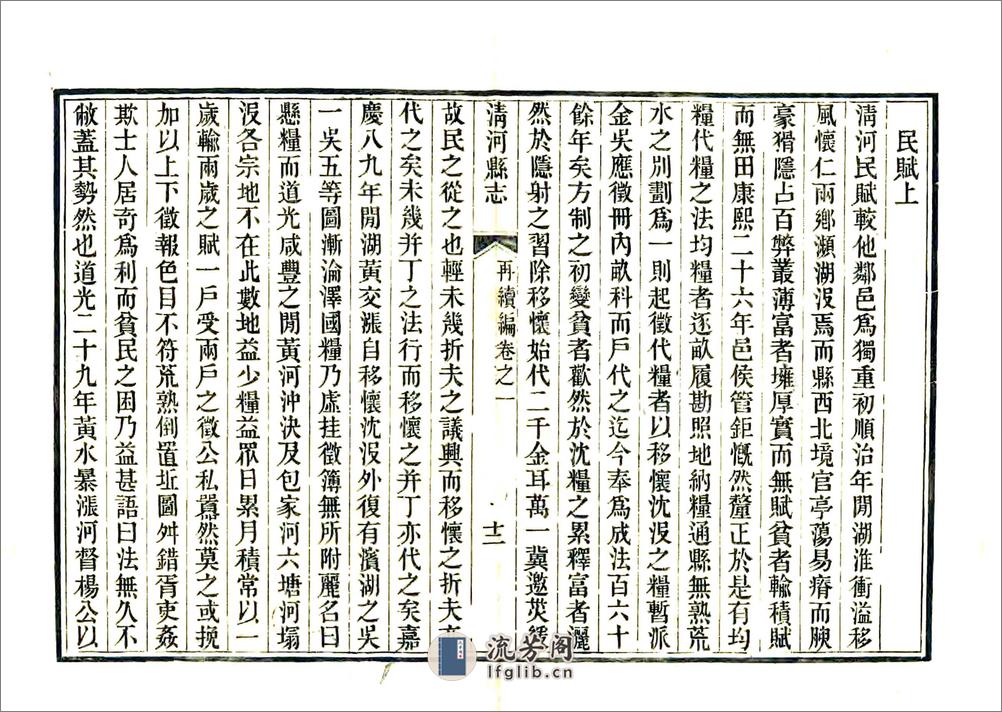 民賦上
清河民賦較他鄰邑爲獨重初順治年閒湖淮衝溢移
風懷仁兩鄉瀕湖沒焉而縣西北境官亭蕩易瘠而腴
豪猾隱占百弊叢薄富者擁厚實而無賦貧者輸積賦
而無田康熙二十六年邑侯管鉅慨然釐正於是有均
糧代糧之法均糧者逐畝履勘照地納糧通縣無熟荒
水之別劃爲一則起徵代糧者以移懷沈沒之糧暫派
金吳應徵冊內畝科而戶代之迄今奉爲成法百六十
餘年矣方制之初變貧者歡然於沈糧之累釋富者灑
然於隱射之習除移懷始代二千金耳萬一冀邀災緩
清河縣志
再續編卷之一
十二
故民之從之也輕未幾折夫之議興而移懷之折夫亦
代之矣未幾并丁之法行而移懷之并丁亦代之矣嘉
慶八九年閒湖黃交漲自移懷沈沒外復有濱湖之吳
一吳五等圖漸淪澤國糧乃虛挂徵簿無所附麗名曰
懸糧而道光咸豐之閒黃河沖決及包家河六塘河塌
沒各宗地不在此數地益少糧益眾日累月積常以一
歲輸兩歲之賦一戶受兩戶之徵公私囂然莫之或挽
加以上下徵報色目不符荒熟倒置坵圖舛錯胥吏姦
欺士人居奇爲利而貧民之困乃益甚語曰法無久不
敝蓋其勢然也道光二十九年黃水暴漲河督楊公以
流芳阁
lfglib.cn